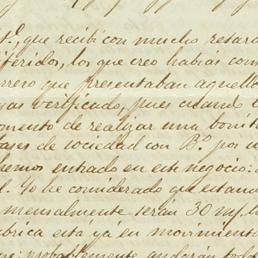 que recibí con mucho retar
feridos, los que creo habías com
rrero que presentaban aquello
yas verificado, pues cuando
omento de realizar una bonit
ases de sociedad con B.º por
hemos entrado en este negocio:
Yo he considerado que estan
mensualmente serán 30 m/
brica esta yá en movimient
ue probablemente andarán